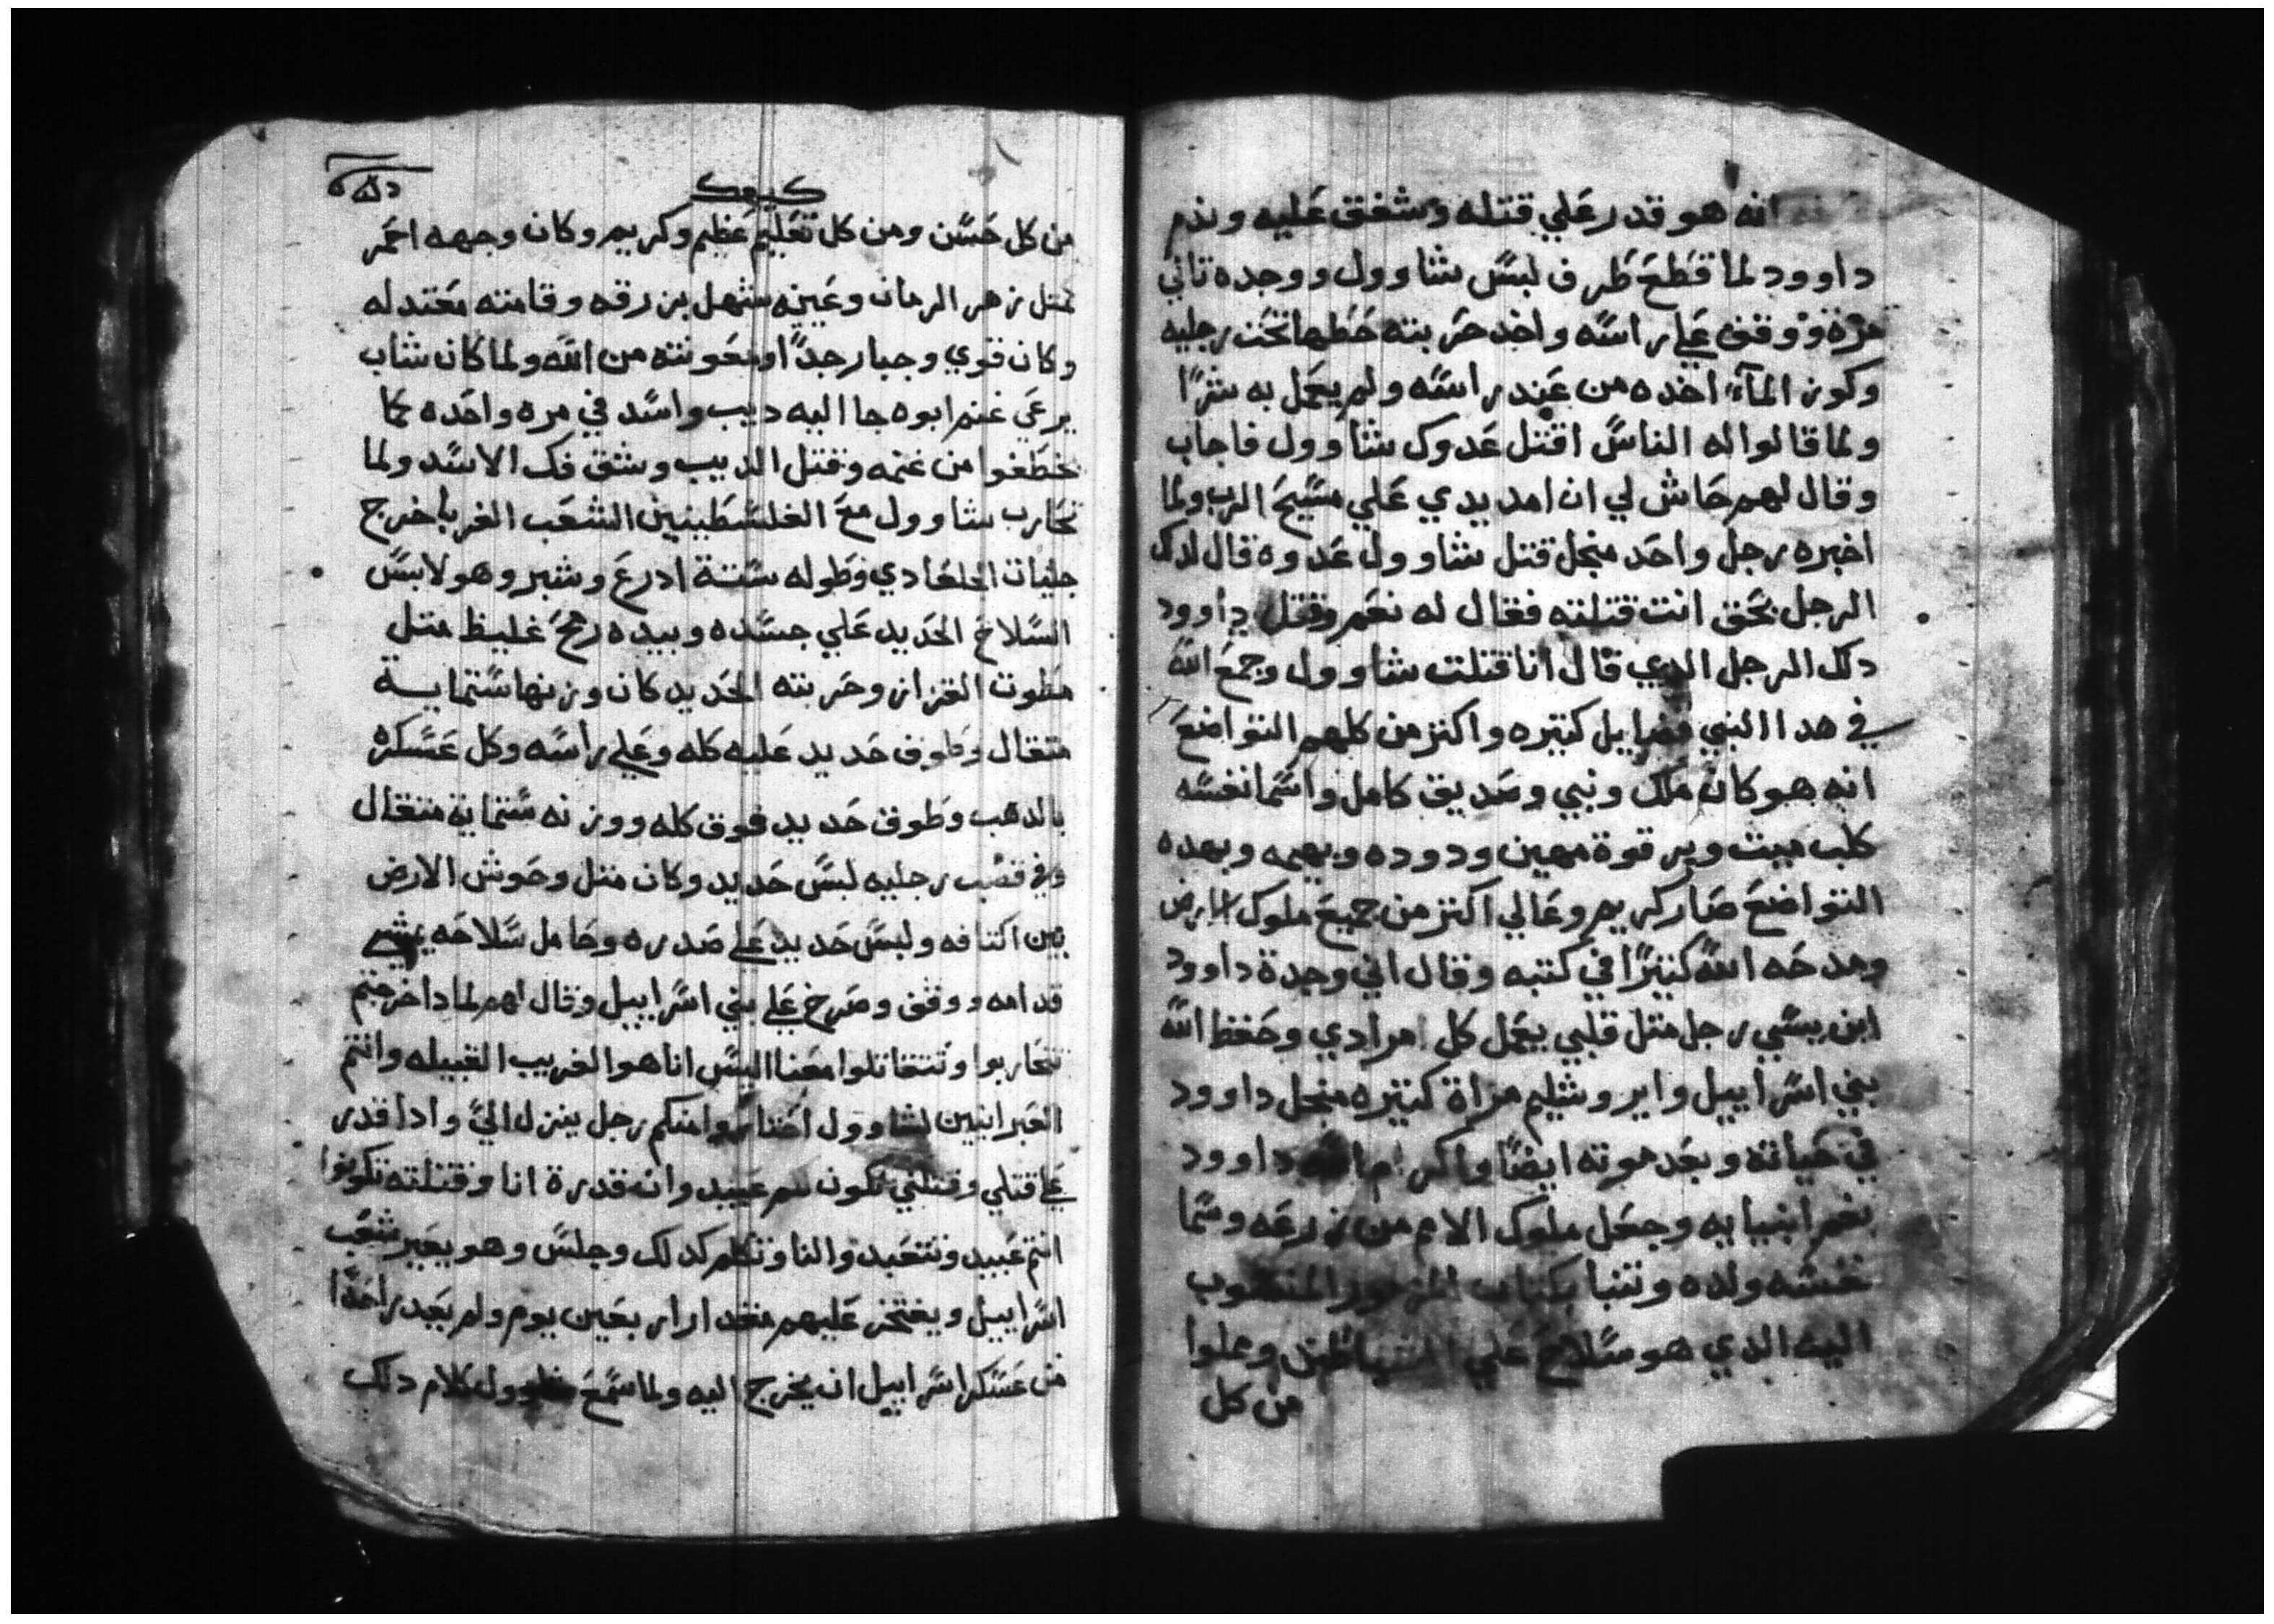 انه هو قدر علي قتله وشفق عليه وندم
داوود لما قطع طرف لبس شاوول ووجده تاني
مرة ووقف علي راسه واخد حربته حطها تحت رجليه
وكوز المآء اخده من عند راسه ولم يعمل به شرًا
ولما قالوا له الناس اقتل عدوك شاوول فاجاب
وقال لهم حاش لي ان امد يدي علي مسيح الرب ولما
اخبره رجل واحد منجل قتل شاوول عدوه قال لدلك
الرجل بحق انت قتلته فقال له نعم وقتل داوود
دلك الرجل الدي قال انا قتلت شاوول وجمع الله
في هدا النبي فضايل كتيره واكتر من كلهم التواضع
انه هو كان ملك ونبي وصديق كامل واسما نفسه
كلب ميت وبرقوة مهين ودوده وبهيمه وبهده
التواضع صار كريم وعالي اكتر من جميع ملوك الارض
ومدحه الله كتيرًا في كتبه وقال اني وجدة داوود
ابن يسي رجل متل قلبي يعمل كل امرادي وحفظ الله
بني اسراييل وايروشليم مراة كتيره منجل داوود
في حياته وبعد موته ايضًا واكرام الله داوود
بغم انبيايه وجعل ملوك الامم من زرعه وسما
نفسه ولده وتنبا بكتاب المزمور المنسوب
اليه الدي هو سلاح علي الشياطين وعملوا
من كل
كيهك
من كل حسن ومن كل تعليم عظيم وكريم وكان وجهه احمر
متل زهر الرمان وعينه شهل بزرقه وقامته معتدله
وكان قوي وجبار جدًا ومعونته من الله ولما كان شاب
يرعي غنم ابوه جا اليه ديب واسد في مره واحده كما
خطفوا من غنمه وقتل الديب وشق فك الاسد ولما
تحارب شاوول مع الفلسطينين الشعب الغربا خرج
جليات الجلعادي وطوله ستة ادرع وشبر وهو لابس
السلاح الحديد علي جسده وبيده رمح غليظ متل
مطوت القزاز وحربته الحديد كان وزنها ستماية
متقال وطوف حديد عليه كله وعلي راسه وكل عسكره
بالدهب وطوف حديد فوق كله ووزنه ستماية متقال
وفي قصب رجليه لبس حديد وكان متل وحوش الارض
بين اكتافه ولبس حديد علي صدره وحامل سلاحه يمشي
قدامه ووقف وصرخ علي بني اسراييل وقال لهم لمادا خرجتم
تتحاربوا وتتقاتلوا معنا اليس انا هو الغريب القبيله وانتم
العبرانيين لشاوول اختاروا منكم رجل ينزل الي وادا قدر
علي قتلي وقتلني نكون لكم عبيد وان قدرة انا وقتلته تكونوا
انتم عبيد ونتعبدوا لنا وتكلم كدلك وجلس وهو يعير شعب
اسراييل ويفتخر عليهم مقدار اربعين يوم ولم يقدر احدًا
من عسكر اسراييل ان يخرج اليه ولما سمع شاوول كلام دلك